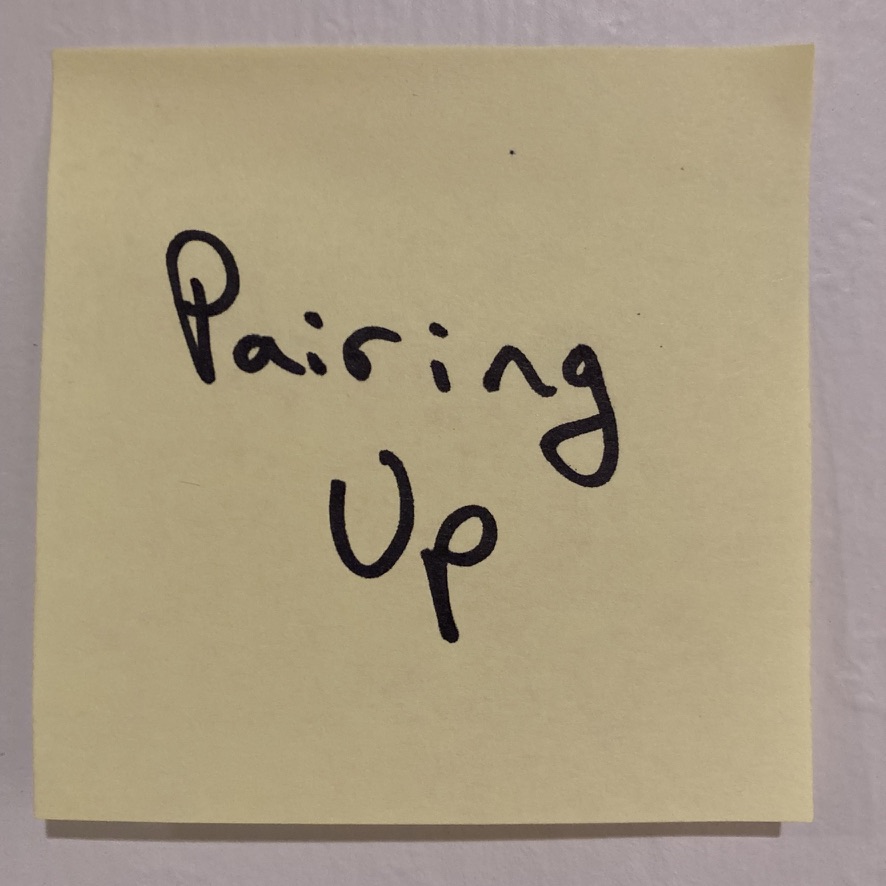 Pairing
Up